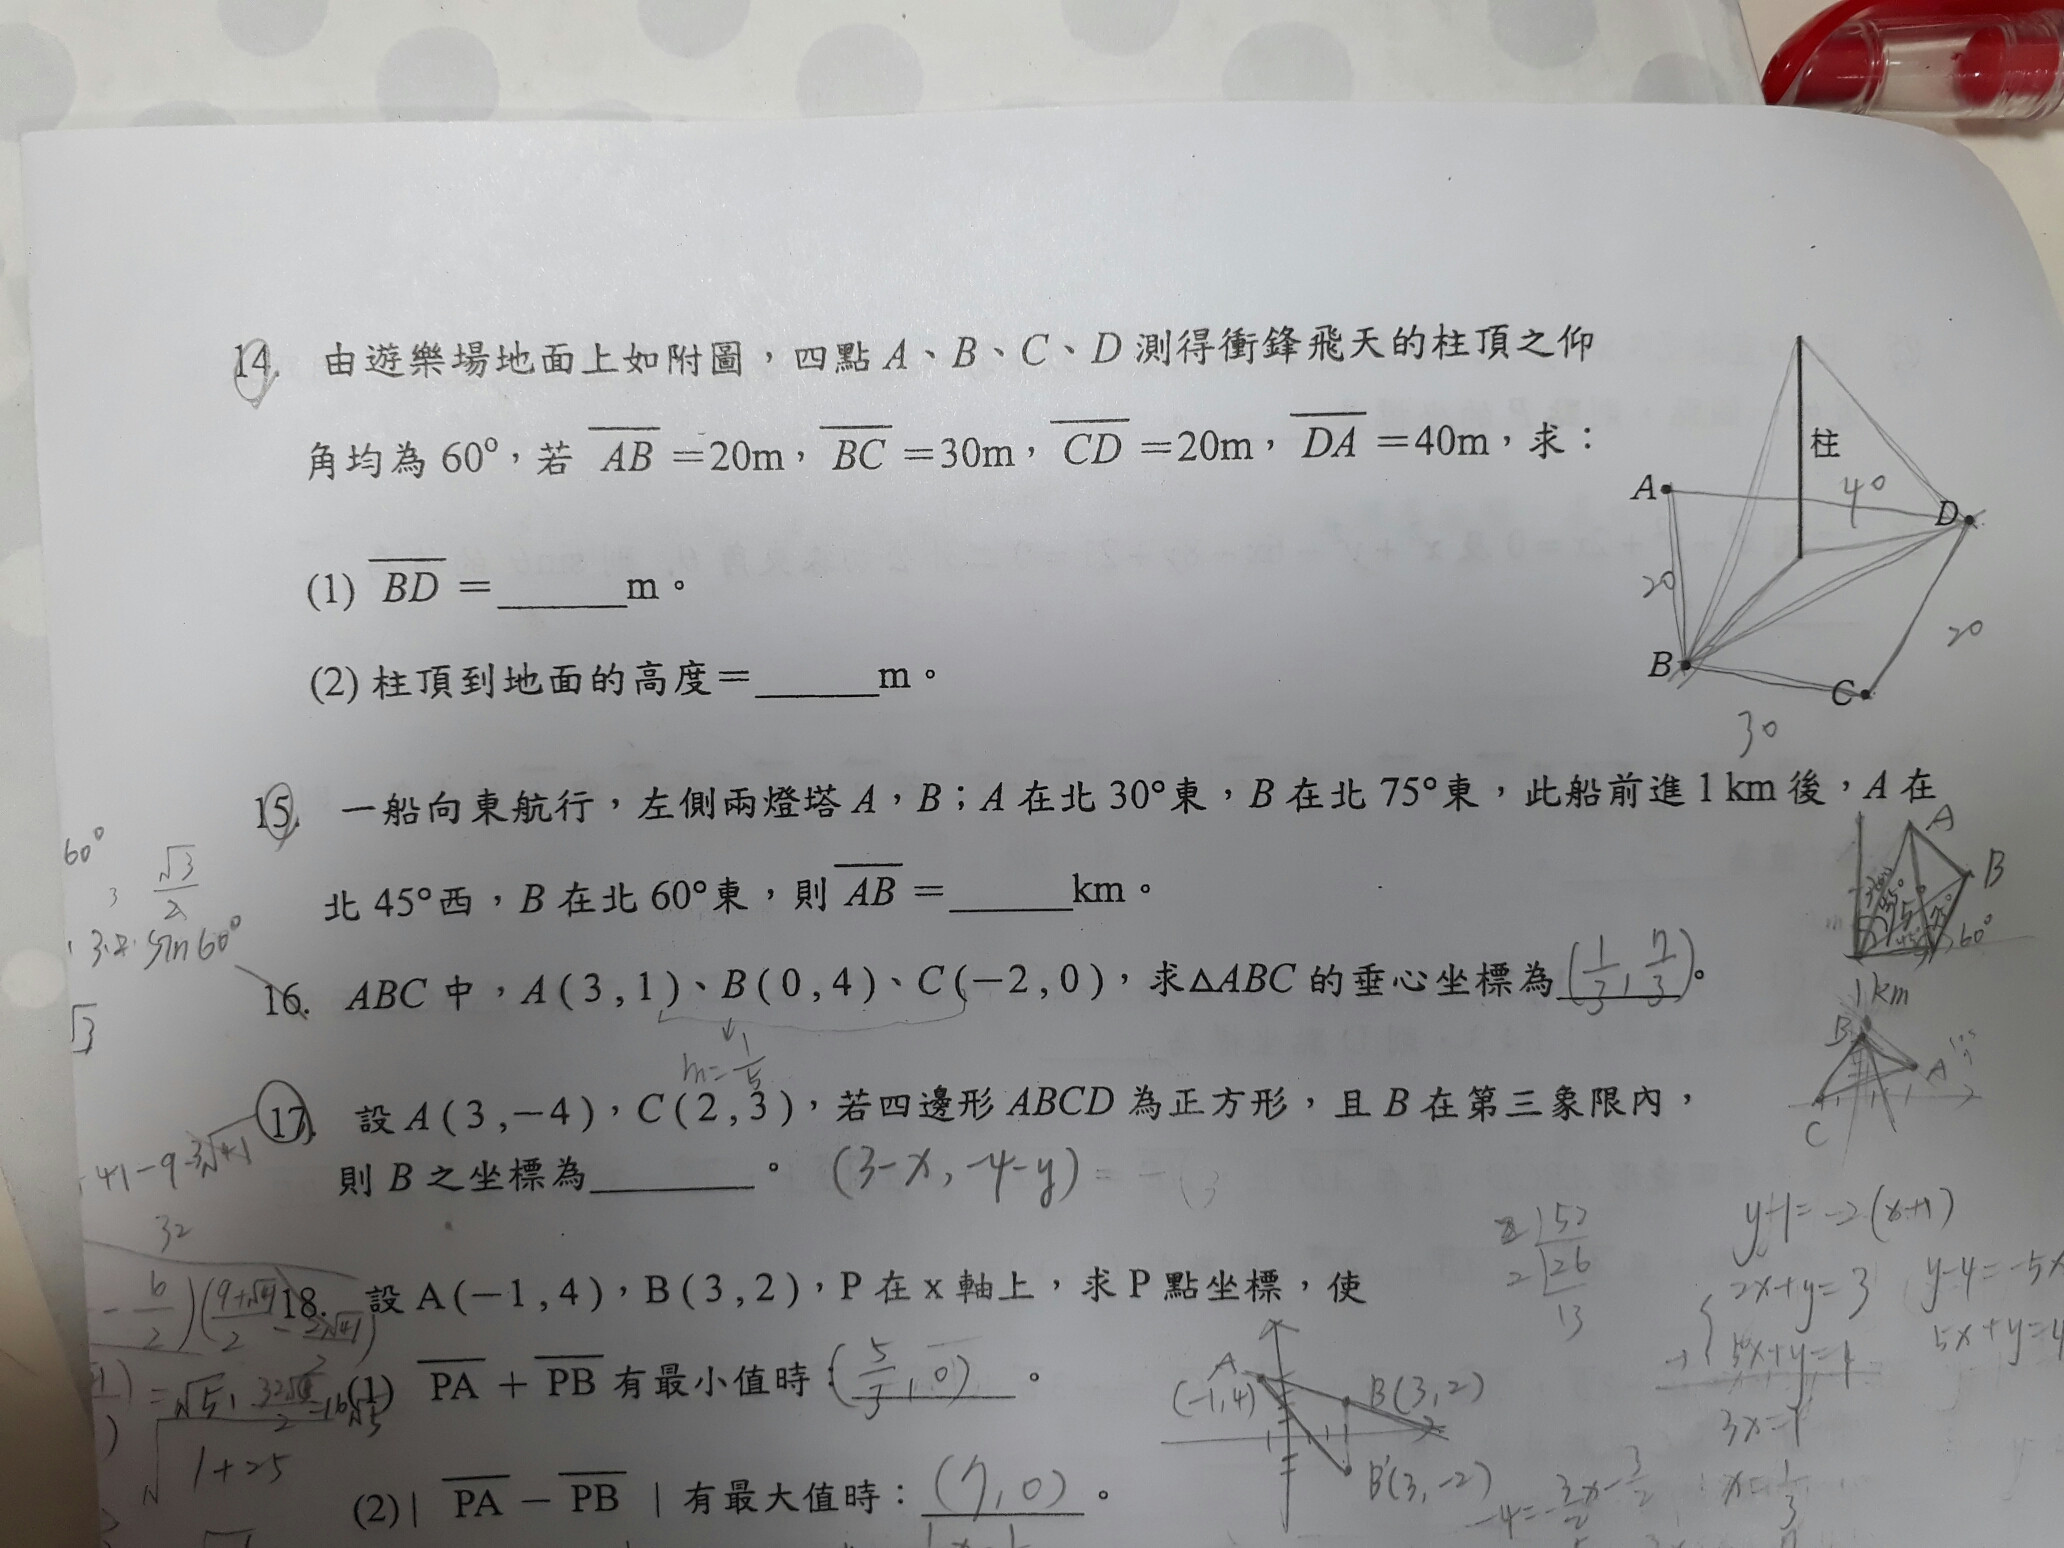 14. 由遊樂場地面上如附圖，四點 A、B、C、D 測得衝鋒飛天的柱頂之仰
角均為 60°，若 AB =20m，BC =30m，CD =20m，DA =40m，求：
(1) BD =______m。
(2) 柱頂到地面的高度=______m。
柱
40
A
D
20
B
20
C
30
15. 一船向東航行，左側兩燈塔 A，B；A 在北 30°東，B 在北 75°東，此船前進 1 km 後，A 在
北 45°西，B 在北 60°東，則 AB =______km。
A
B
60°
1km
60°
√3/2
3·2·sin60°
√3
16. ABC 中，A(3,1)、B(0,4)、C(−2,0)，求△ABC 的垂心坐標為(1/3, 7/3)。
m=1/5
B
A
C
17. 設 A(3,−4)，C(2,3)，若四邊形 ABCD 為正方形，且 B 在第三象限內，
則 B 之坐標為________。 (3-x, -4-y) =
41-9-3√41
32
2 52
2 26
13
y-1=-2(x+1)
2x+y=3
5x+y=4
3x=1
x=1/3
y-4=-5x
5x+y=4
18. 設 A(−1,4)，B(3,2)，P 在 x 軸上，求 P 點坐標，使
(1) PA + PB 有最小值時：(5/3, 0)。
(2)| PA − PB | 有最大值時：(7,0)。
A
(-1,4)
B(3,2)
B'(3,-2)
1+25